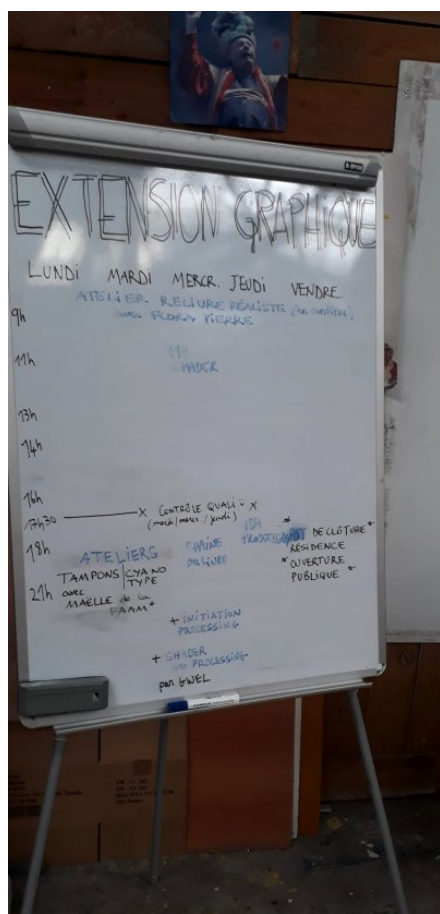 EXTENSION GRAPHIQUE
LUNDI MARDI MERCR. JEUDI VENDRE.
ATELIER RELIURE RÉALISTE
9h avec FLORA PIERRE
11h 11H
SHADER
13h
14h
16h
X CONTRÔLE QUALI X
17h30 (mardi/mercr./jeudi)
18h 18H
ATELIERS
TAMPONS / CYANO TYPE
21h avec
MAËLLE de la
PAAM*
CHAÎNE
DU LIVRE
* DE CLÔTURE *
RÉSIDENCE
* OUVERTURE
PUBLIQUE *
+ INITIATION
PROCESSING
+ SHADER
PROCESSING
par GWEL